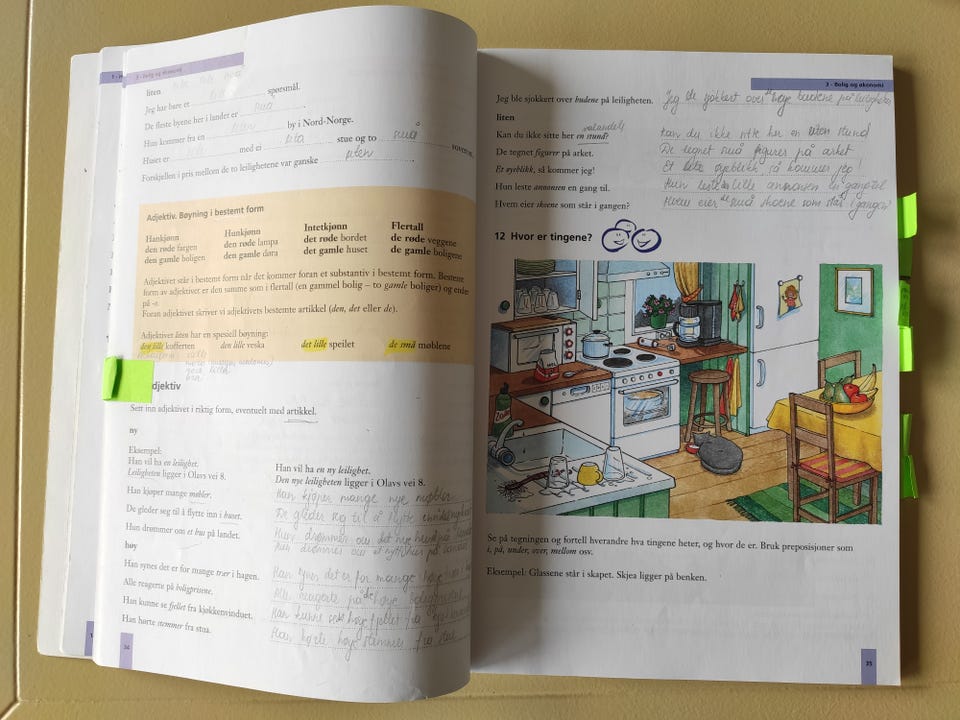 3 - Bolig og økonomi
liten
Jeg har bare et spørsmål.
De fleste byene her i landet er små
Hun kommer fra en liten by i Nord-Norge.
Huset er med ei lita stue og to små soverom.
Forskjellen i pris mellom de to leilighetene var ganske liten
Adjektiv. Bøyning i bestemt form
Hankjønn Hunkjønn Intetkjønn Flertall
den røde fargen den røde lampa det røde bordet de røde veggene
den gamle boligen den gamle døra det gamle huset de gamle boligene
Adjektivet står i bestemt form når det kommer foran et substantiv i bestemt form. Bestemt
form av adjektivet er den samme som i flertall (en gammel bolig – to gamle boliger) og ender
på -e.
Foran adjektivet skriver vi adjektivets bestemte artikkel (den, det eller de).
Adjektivet liten har en spesiell bøyning:
den lille kofferten den lille veska det lille speilet de små møblene
djektiv
Sett inn adjektivet i riktig form, eventuelt med artikkel.
ny
Eksempel:
Han vil ha en leilighet. Han vil ha en ny leilighet.
Leiligheten ligger i Olavs vei 8. Den nye leiligheten ligger i Olavs vei 8.
Han kjøper mange møbler. Han kjøper mange nye møbler
De gleder seg til å flytte inn i huset. De gleder seg til å flytte
Hun drømmer om et hus på landet. Hun drømmer om det nye
Hun drømmer om et nytt hus på landet
høy
Han synes det er for mange trær i hagen. Han synes det er for mange høye
Alle reagerte på boligprisene. Alle reagerte på de høye
Han kunne se fjellet fra kjøkkenvinduet. Han kunne se høye fjellet fra
Han hørte stemmer fra stua. Han hørte høye stemmer fra stua
34
3 - Bolig og økonomi
Jeg ble sjokkert over budene på leiligheten. Jeg ble sjokkert over de høye budene på leiligheten
liten
Kan du ikke sitte her en stund? Kan du ikke sitte her en liten stund
De tegnet figurer på arket. De tegnet små figurer på arket
Et øyeblikk, så kommer jeg! Et lite øyeblikk, så kommer jeg!
Hun leste annonsen en gang til. Hun leste lille annonsen en gang til
Hvem eier skoene som står i gangen? Hvem eier de små skoene som står i gangen?
12 Hvor er tingene?
Se på tegningen og fortell hverandre hva tingene heter, og hvor de er. Bruk preposisjoner som
i, på, under, over, mellom osv.
Eksempel: Glassene står i skapet. Skjea ligger på benken.
35